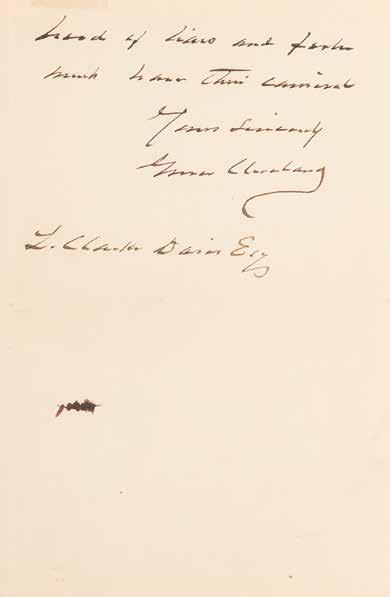 brood of liars and fools
must have their carnival
Yours Sincerely
Grover Cleveland
L. Clarke Davis Esq